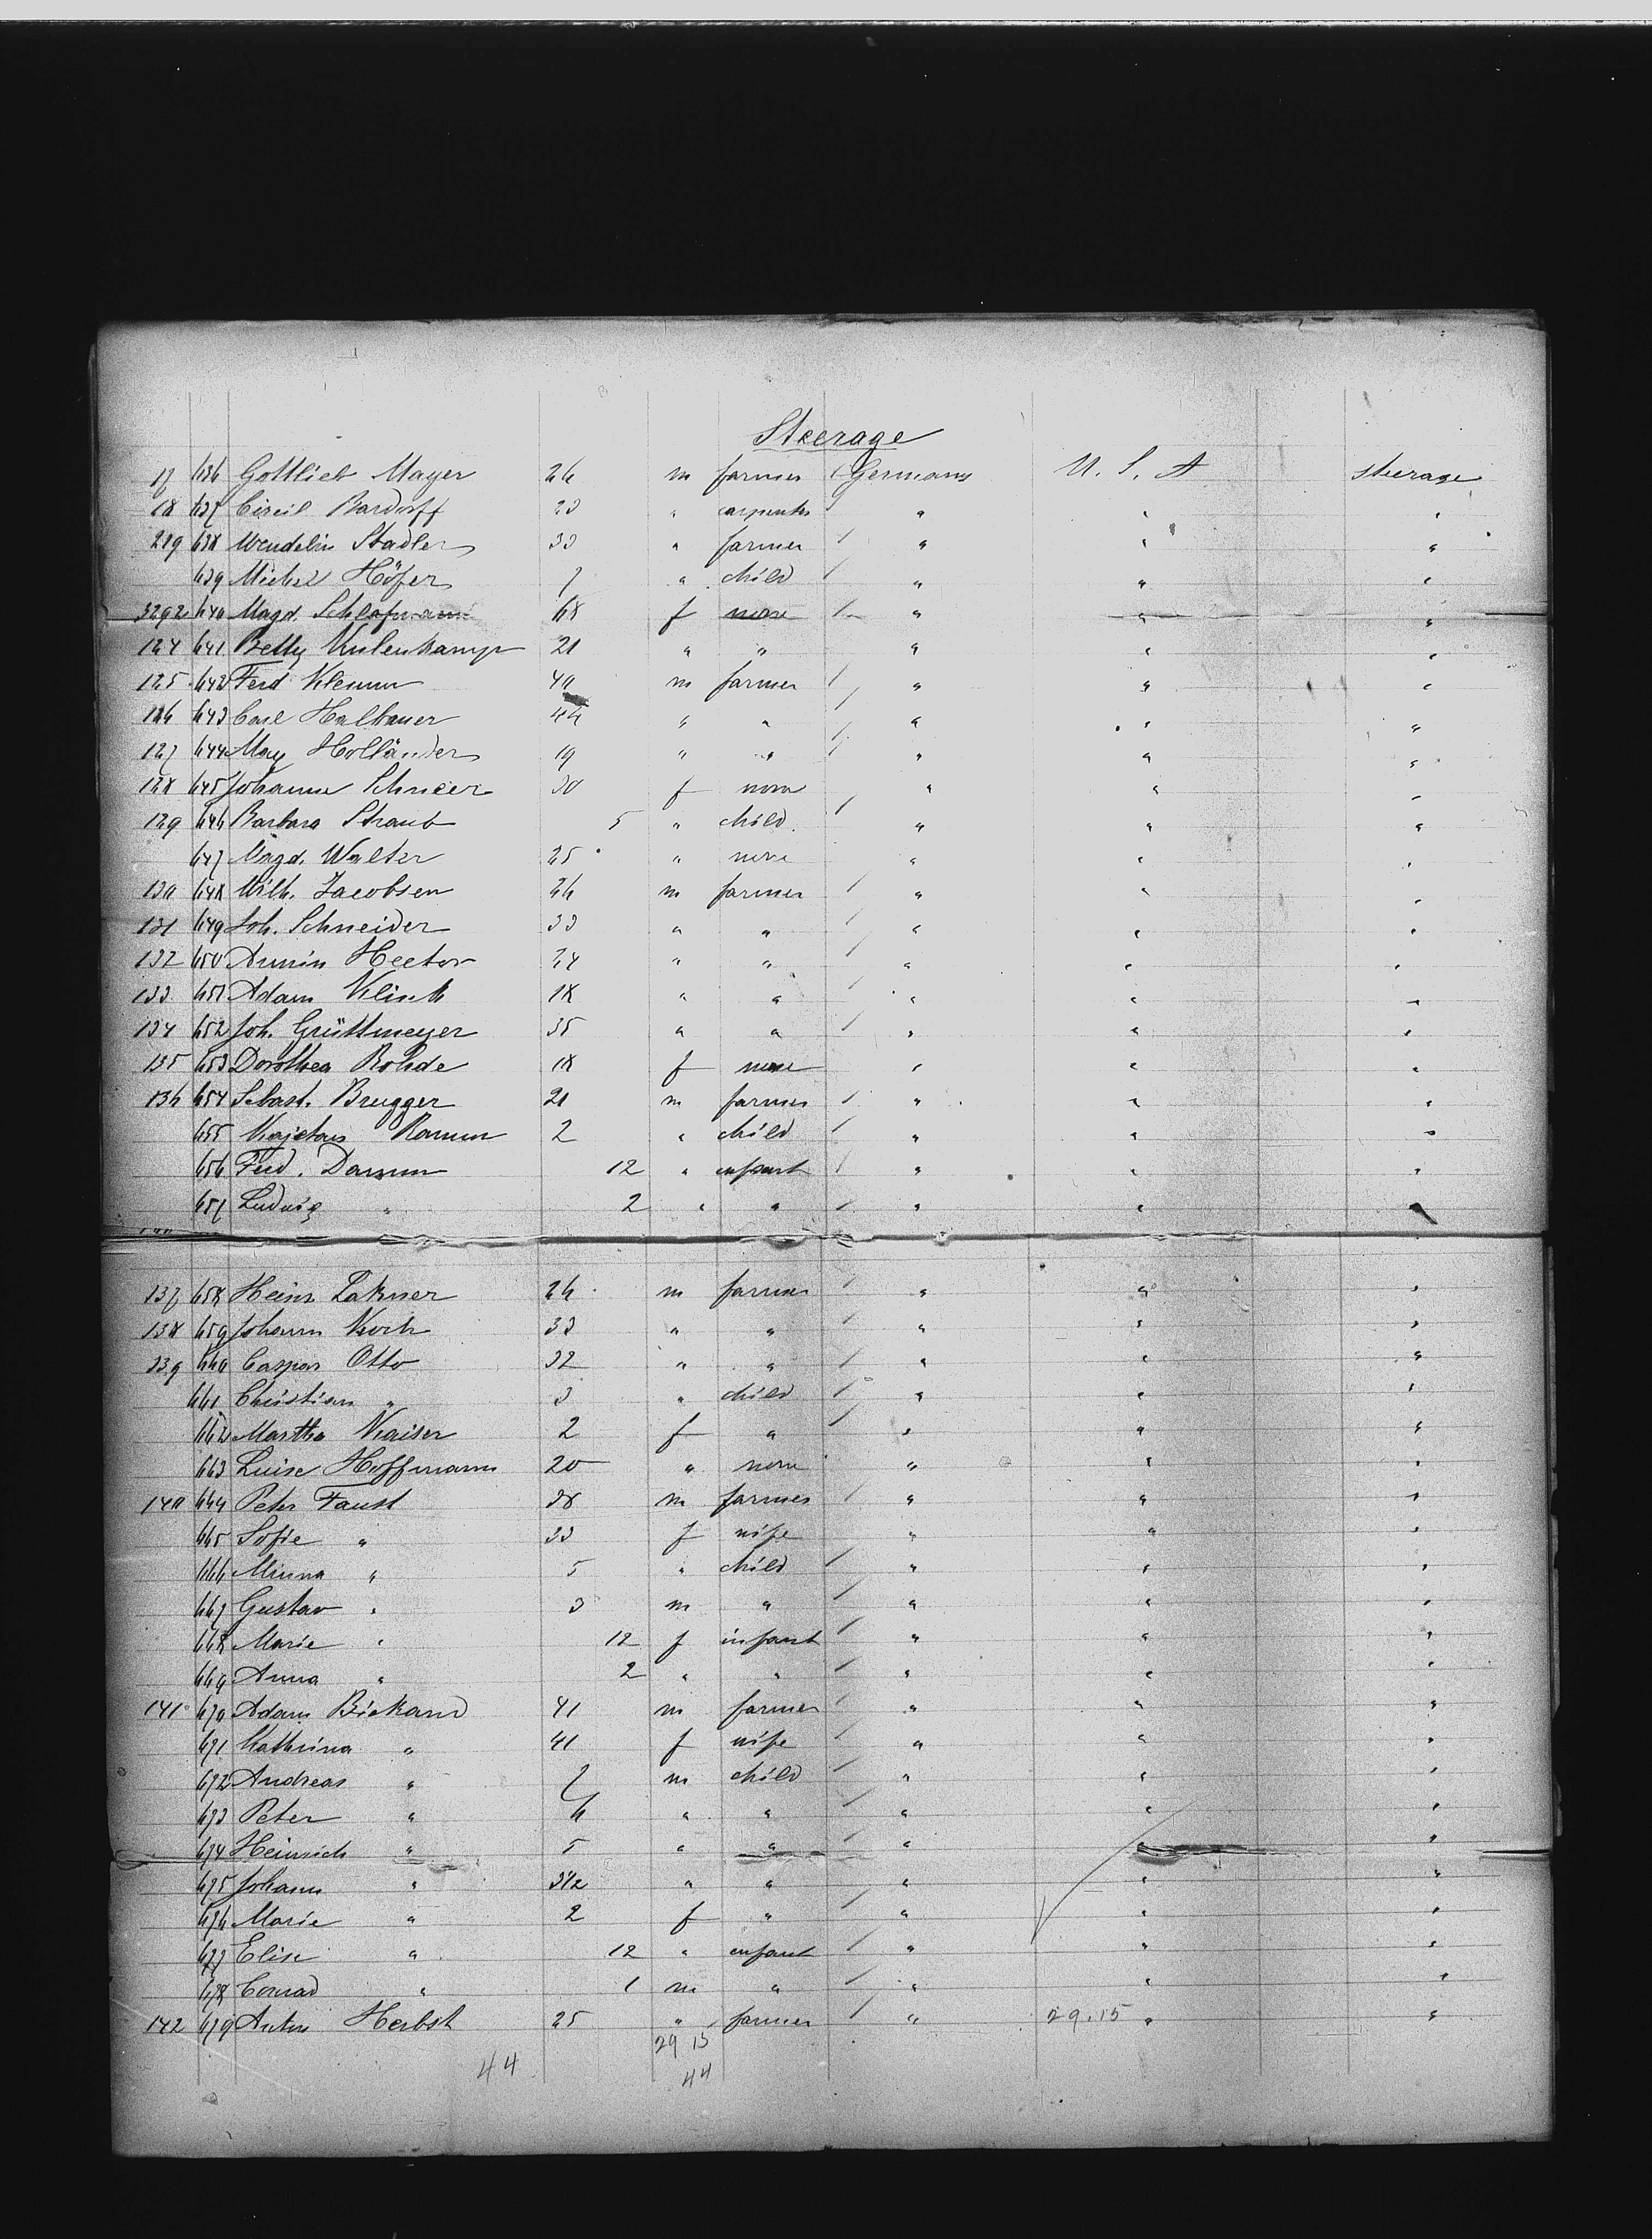 Steerage
17 636 Gottlieb Mayer 26 m farmer Germany U. S. A steerage
18 637 Bardorff 23 " carpenter " " "
219 638 Wendelin Stadler 33 " farmer " " "
639 Michel Höfer 7 " child " " "
640 Magd. 68 f none " " "
124 641 Betty Kulenkamp 21 " " " " "
125 642 Ferd Klemm 40 m farmer " " "
126 643 Carl Halbauer 44 " " " " "
127 644 Max Holländer 19 " " " " "
128 645 Johanne 30 f none " " "
129 646 Barbara Straub 5 " child " " "
647 Magd. Walter 25 " none " " "
130 648 Wilh. Jacobsen 26 m farmer " " "
131 649 Joh. Schneider 33 " " " " "
132 650 Armin Hector 24 " " " " "
133 651 Adam Klink 18 " " " " "
134 652 Joh. Grüttmeyer 35 " " " " "
135 653 Dorothea Rohde 18 f none " " "
136 654 Sebast. Brugger 21 m farmer " " "
655 Kajetan 2 " child " " "
656 Ferd. Damm 12 " infant " " "
657 Ludwig " 2 " " " " "
137 658 Heinr. Lakner 26 m farmer " " "
138 659 Johann Koch 33 " " " " "
139 660 Caspar Otto 32 " " " " "
661 Christian " 3 " child " " "
662 Martha Kaiser 2 f " " " "
663 Luise Hoffmann 20 " none " " "
140 664 Peter Faust 38 m farmer " " "
665 Sofie " 33 f wife " " "
666 Minna " 5 " child " " "
667 Gustav " 3 m " " " "
668 Marie " 12 f infant " " "
669 Anna " 2 " " " " "
141 670 Adam Bickard 41 m farmer " " "
671 Kathrina " 41 f wife " " "
672 Andreas " 7 m child " " "
673 Peter " 6 " " " " "
674 Heinrich " 5 " " " " "
675 Johann " 3 1/2 " " " " "
676 Marie " 2 f " " " "
677 Elise " 12 " infant " " "
678 Conrad " 1 m " " " "
142 679 Anton Herbst 25 " farmer " 29.15 " "
29 15
44 44